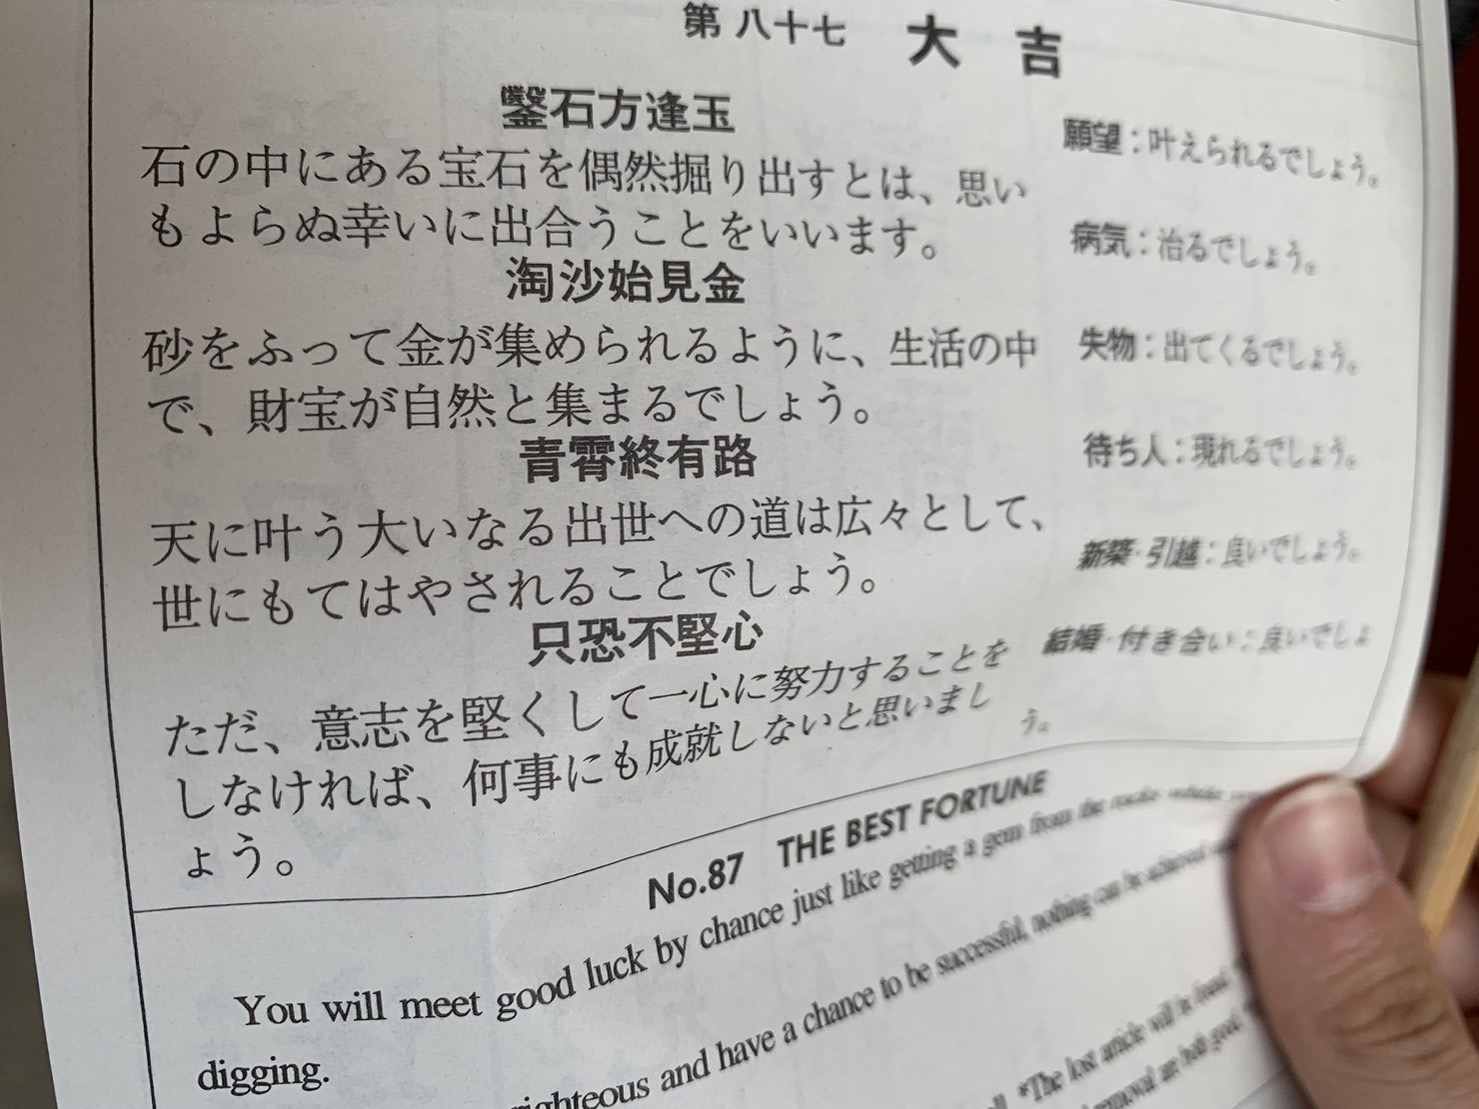 第八十七 大吉
鑿石方逢玉
石の中にある宝石を偶然掘り出すとは、思い
もよらぬ幸いに出合うことをいいます。
淘沙始見金
砂をふって金が集められるように、生活の中
で、財宝が自然と集まるでしょう。
青霄終有路
天に叶う大いなる出世への道は広々として、
世にもてはやされることでしょう。
只恐不堅心
ただ、意志を堅くして一心に努力することを
しなければ、何事にも成就しないと思いまし
ょう。
願望：叶えられるでしょう。
病気：治るでしょう。
失物：出てくるでしょう。
待ち人：現れるでしょう。
新築・引越：良いでしょう。
結婚・付き合い：良いでしょ
う。
No.87 THE BEST FORTUNE
You will meet good luck by chance just like getting a gem from the rocks while
digging.
righteous and have a chance to be successful, nothing can be achieved
*The lost article will be found.
removal are both good.